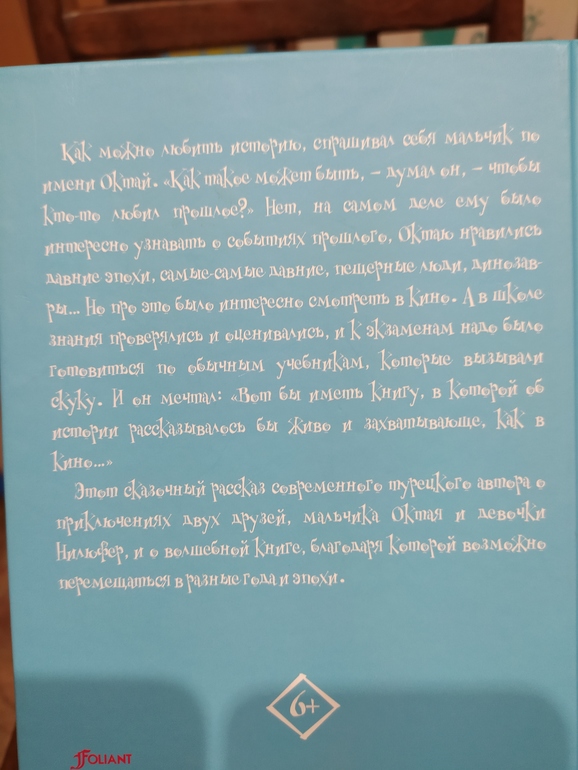 Как можно любить историю, спрашивал себя мальчик по
имени Октай. «Как такое может быть, – думал он, – чтобы
кто-то любил прошлое?» Нет, на самом деле ему было
интересно узнавать о событиях прошлого, Октаю нравились
давние эпохи, самые-самые давние, пещерные люди, динозав-
ры... Но про это было интересно смотреть в кино. А в школе
знания проверялись и оценивались, и к экзаменам надо было
готовиться по обычным учебникам, которые вызывали
скуку. И он мечтал: «Вот бы иметь книгу, в которой об
истории рассказывалось бы живо и захватывающе, как в
кино...»
Этот сказочный рассказ современного турецкого автора о
приключениях двух друзей, мальчика Октая и девочки
Нилюфер, и о волшебной книге, благодаря которой возможно
перемещаться в разные года и эпохи.
6+
FOLIANT